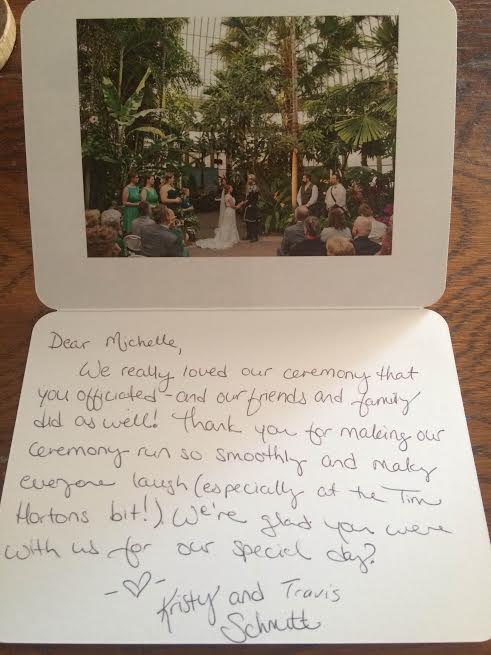 Dear Michelle,
We really loved our ceremony that
you officiated - and our friends and family
did as well! Thank you for making our
ceremony run so smoothly and making
everyone laugh (especially at the Tim
Hortons bit!). We're glad you were
with us for our special day!
-♡-
Kristy and Travis
Schmitt